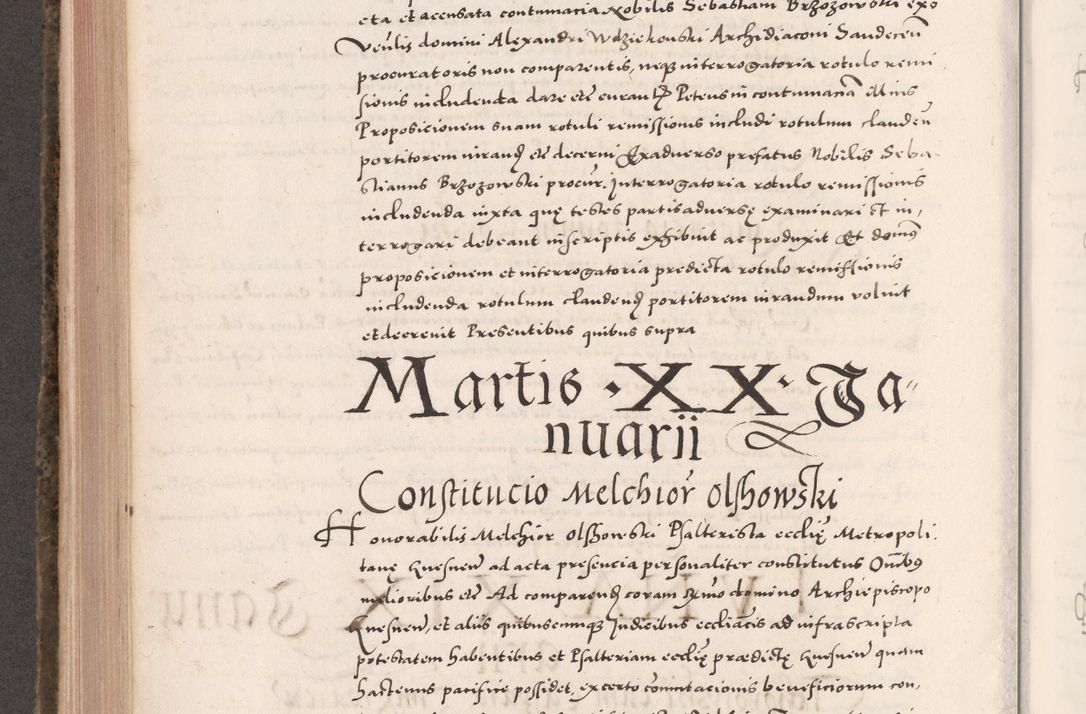 eta et accusata contumacia Nobilis Sebastiani Brzozowski
Venlis domini Alexandri Wdziekonski Archidiaconi Sandecen
procuratoris non comparentis, neque interrogatoria rotulo remi
sionis includenda dare etc curaut Petens in contumaciam illius
Propositionem suam rotuli remissionis includi rotulum clauden
portitorem iurand etc decerni Ex adverso prefatus Nobilis Seba
stianus Brzozowski procur. Interrogatoria rotulo remissionis
includenda iuxta quę testes partis adversę examinari et in,
terrogari debeant in scriptis exhibuit ac produxit Et domus
propositionem et interrogatoria predicta rotulo remissionis
includenda rotulum claudend portitorem iurandum voluit
et decrevit Presentibus quibus supra
Martis · X X · Ja
nuarii
Constitucio Melchior Olshowski
Honorabilis Melchior Olshowski Psalterista ecclię Metropoli
tanę Gnesnen ad acta presencia personaliter constitutus Omnibus
melioribus etc Ad comparend coram domino Archiepiscopo
Gnesnen, et aliis quibuscumque Judicibus eccliacis ad infrascripta
potestatem habentibus et Psalteriam ecclię prædictę Gnesnen quam
hactenus pacifice possidet, ex certo comutacionis beneficiorum con,